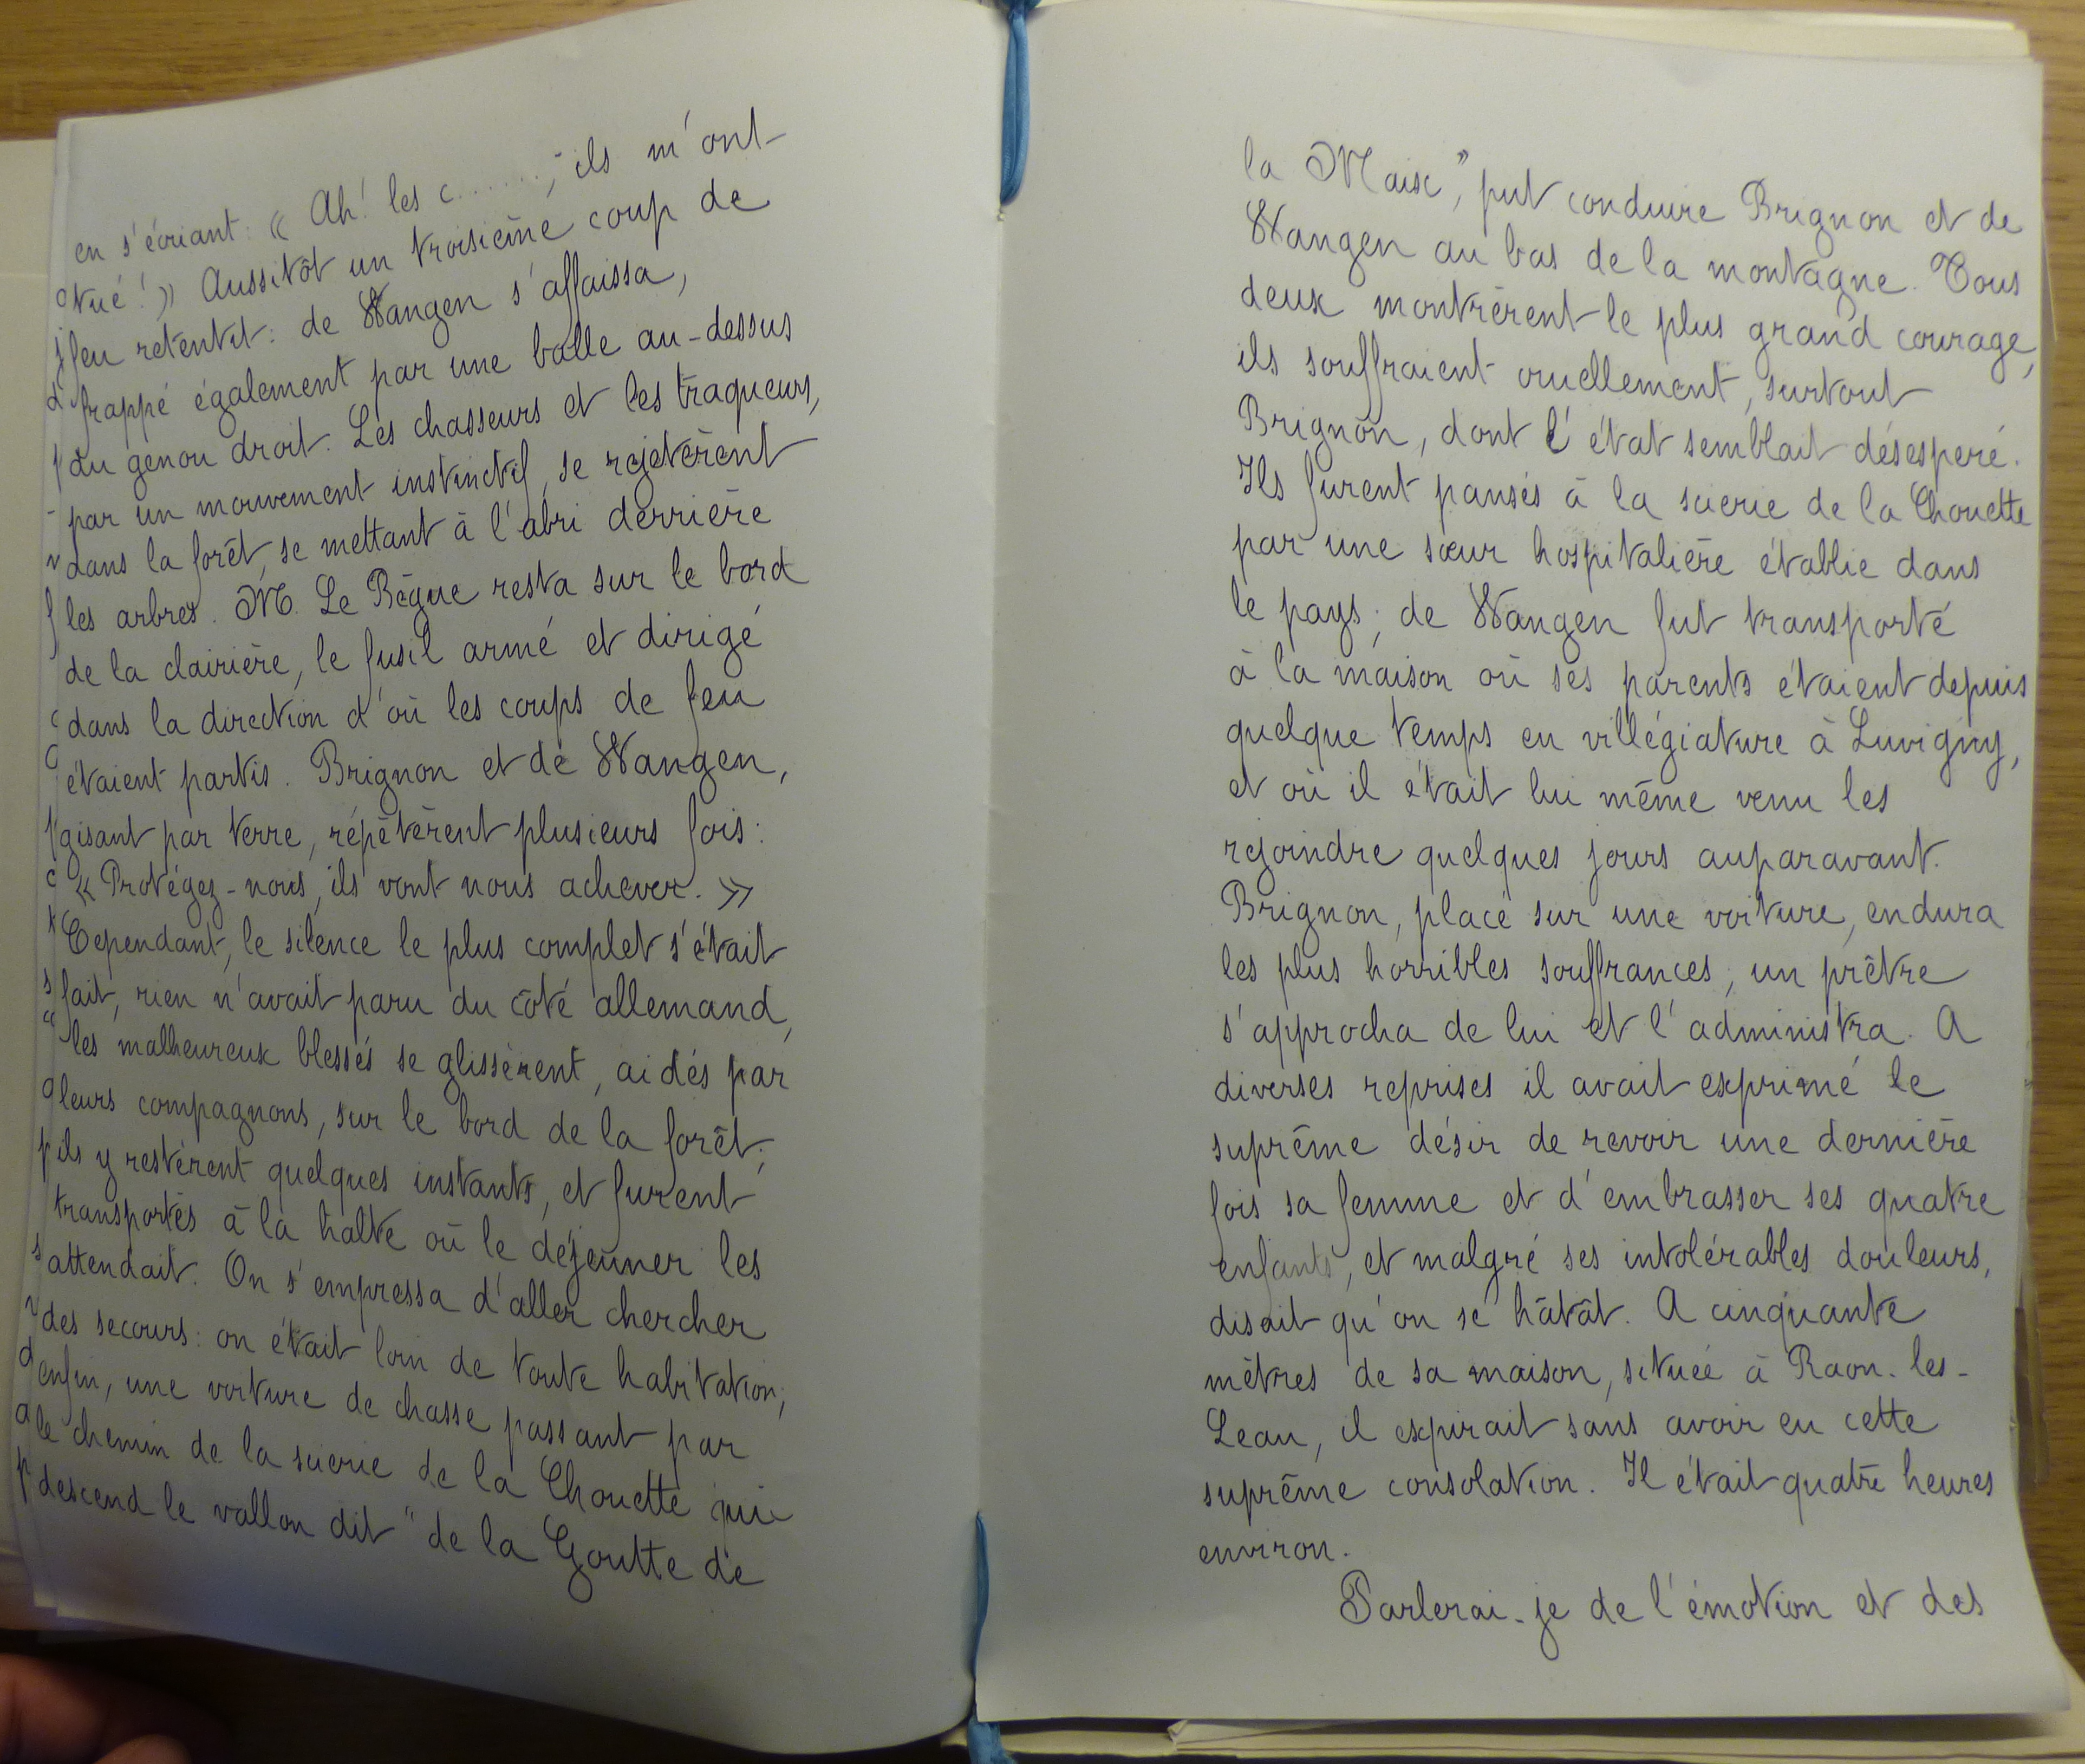 en s'écriant : « Ah ! les c.......; ils m'ont
tué ! » Aussitôt un troisième coup de
feu retentit : de Wangen s'affaissa,
frappé également par une balle au-dessus
du genou droit. Les chasseurs et les traqueurs,
par un mouvement instinctif, se rejetèrent
dans la forêt, se mettant à l'abri derrière
les arbres. M. Le Bègue resta sur le bord
de la clairière, le fusil armé et dirigé
dans la direction d'où les coups de feu
étaient partis. Brignon et de Wangen,
gisant par terre, répétèrent plusieurs fois :
« Protégez-nous, ils vont nous achever. »
Cependant, le silence le plus complet s'était
fait, rien n'avait paru du côté allemand,
les malheureux blessés se glissèrent, aidés par
leurs compagnons, sur le bord de la forêt ;
ils y restèrent quelques instants, et furent
transportés à la halte où le déjeuner les
attendait. On s'empressa d'aller chercher
des secours : on était loin de toute habitation ;
enfin, une voiture de chasse passant par
le chemin de la scierie de la Chouette qui
descend le vallon dit "de la Goutte de
la Maix", put conduire Brignon et de
Wangen au bas de la montagne. Tous
deux montrèrent le plus grand courage,
ils souffraient cruellement, surtout
Brignon, dont l'état semblait désespéré.
Ils furent pansés à la scierie de la Chouette
par une sœur hospitalière établie dans
le pays ; de Wangen fut transporté
à la maison où ses parents étaient depuis
quelque temps en villégiature à Luvigny,
et où il était lui même venu les
rejoindre quelques jours auparavant.
Brignon, placé sur une voiture, endura
les plus horribles souffrances ; un prêtre
s'approcha de lui et l'administra. A
diverses reprises il avait exprimé le
suprême désir de revoir une dernière
fois sa femme et d'embrasser ses quatre
enfants, et malgré ses intolérables douleurs,
disait qu'on se hâtât. A cinquante
mètres de sa maison, située à Raon-les-
Leau, il expirait sans avoir eu cette
suprême consolation. Il était quatre heures
environ.
Parlerai-je de l'émotion et des